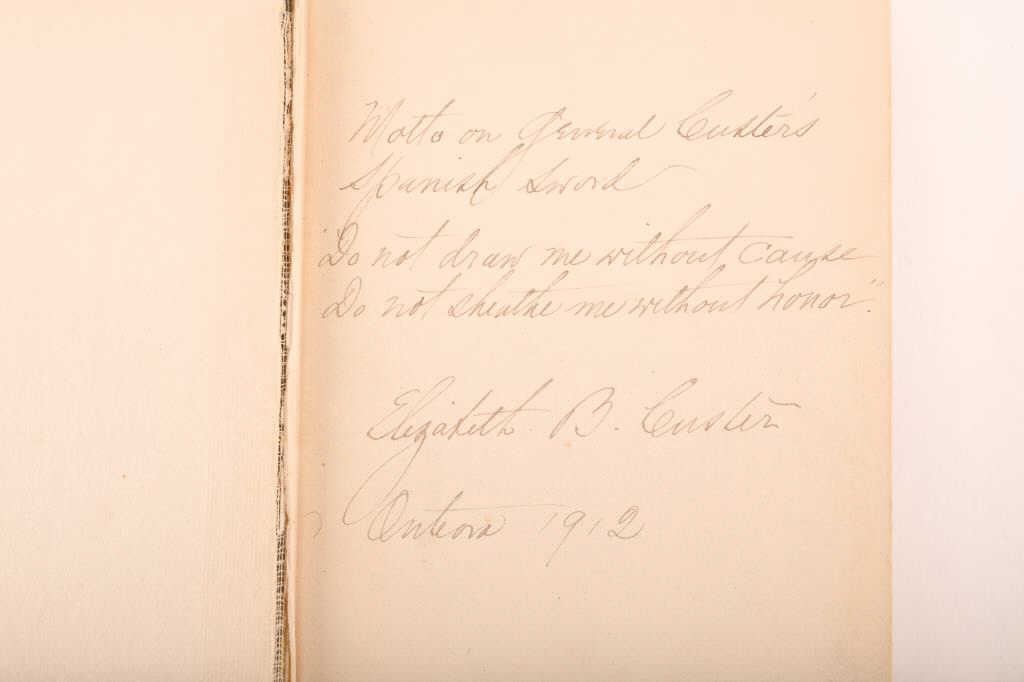 Motto on General Custer's
Spanish Sword
"Do not draw me without cause
Do not sheathe me without honor".
Elizabeth B. Custer
Onteora 1912